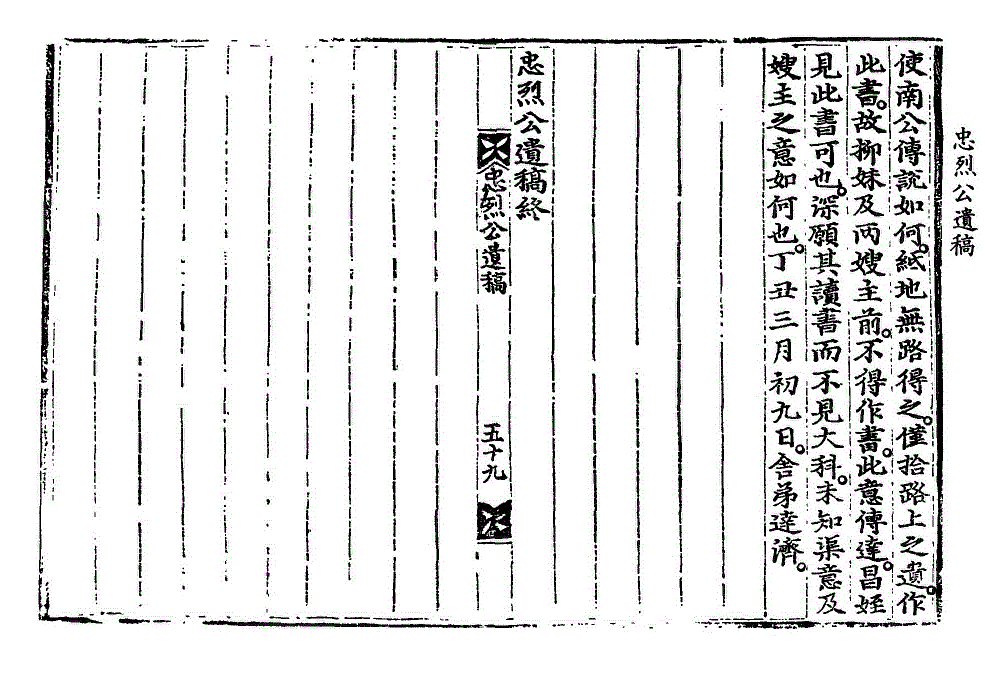 忠烈公遺稿
使南公傳說如何。紙地無路得之。僅拾路上之遺。作
此書。故抑妹及两嫂主前。不得作書。此意傳達。昌姪
見此書可也。深願其讀書而不見大科。未知渠意及
嫂主之意如何也。丁丑三月初九日。舍弟達濟。
忠烈公遺稿終
忠烈公遺稿
五十九